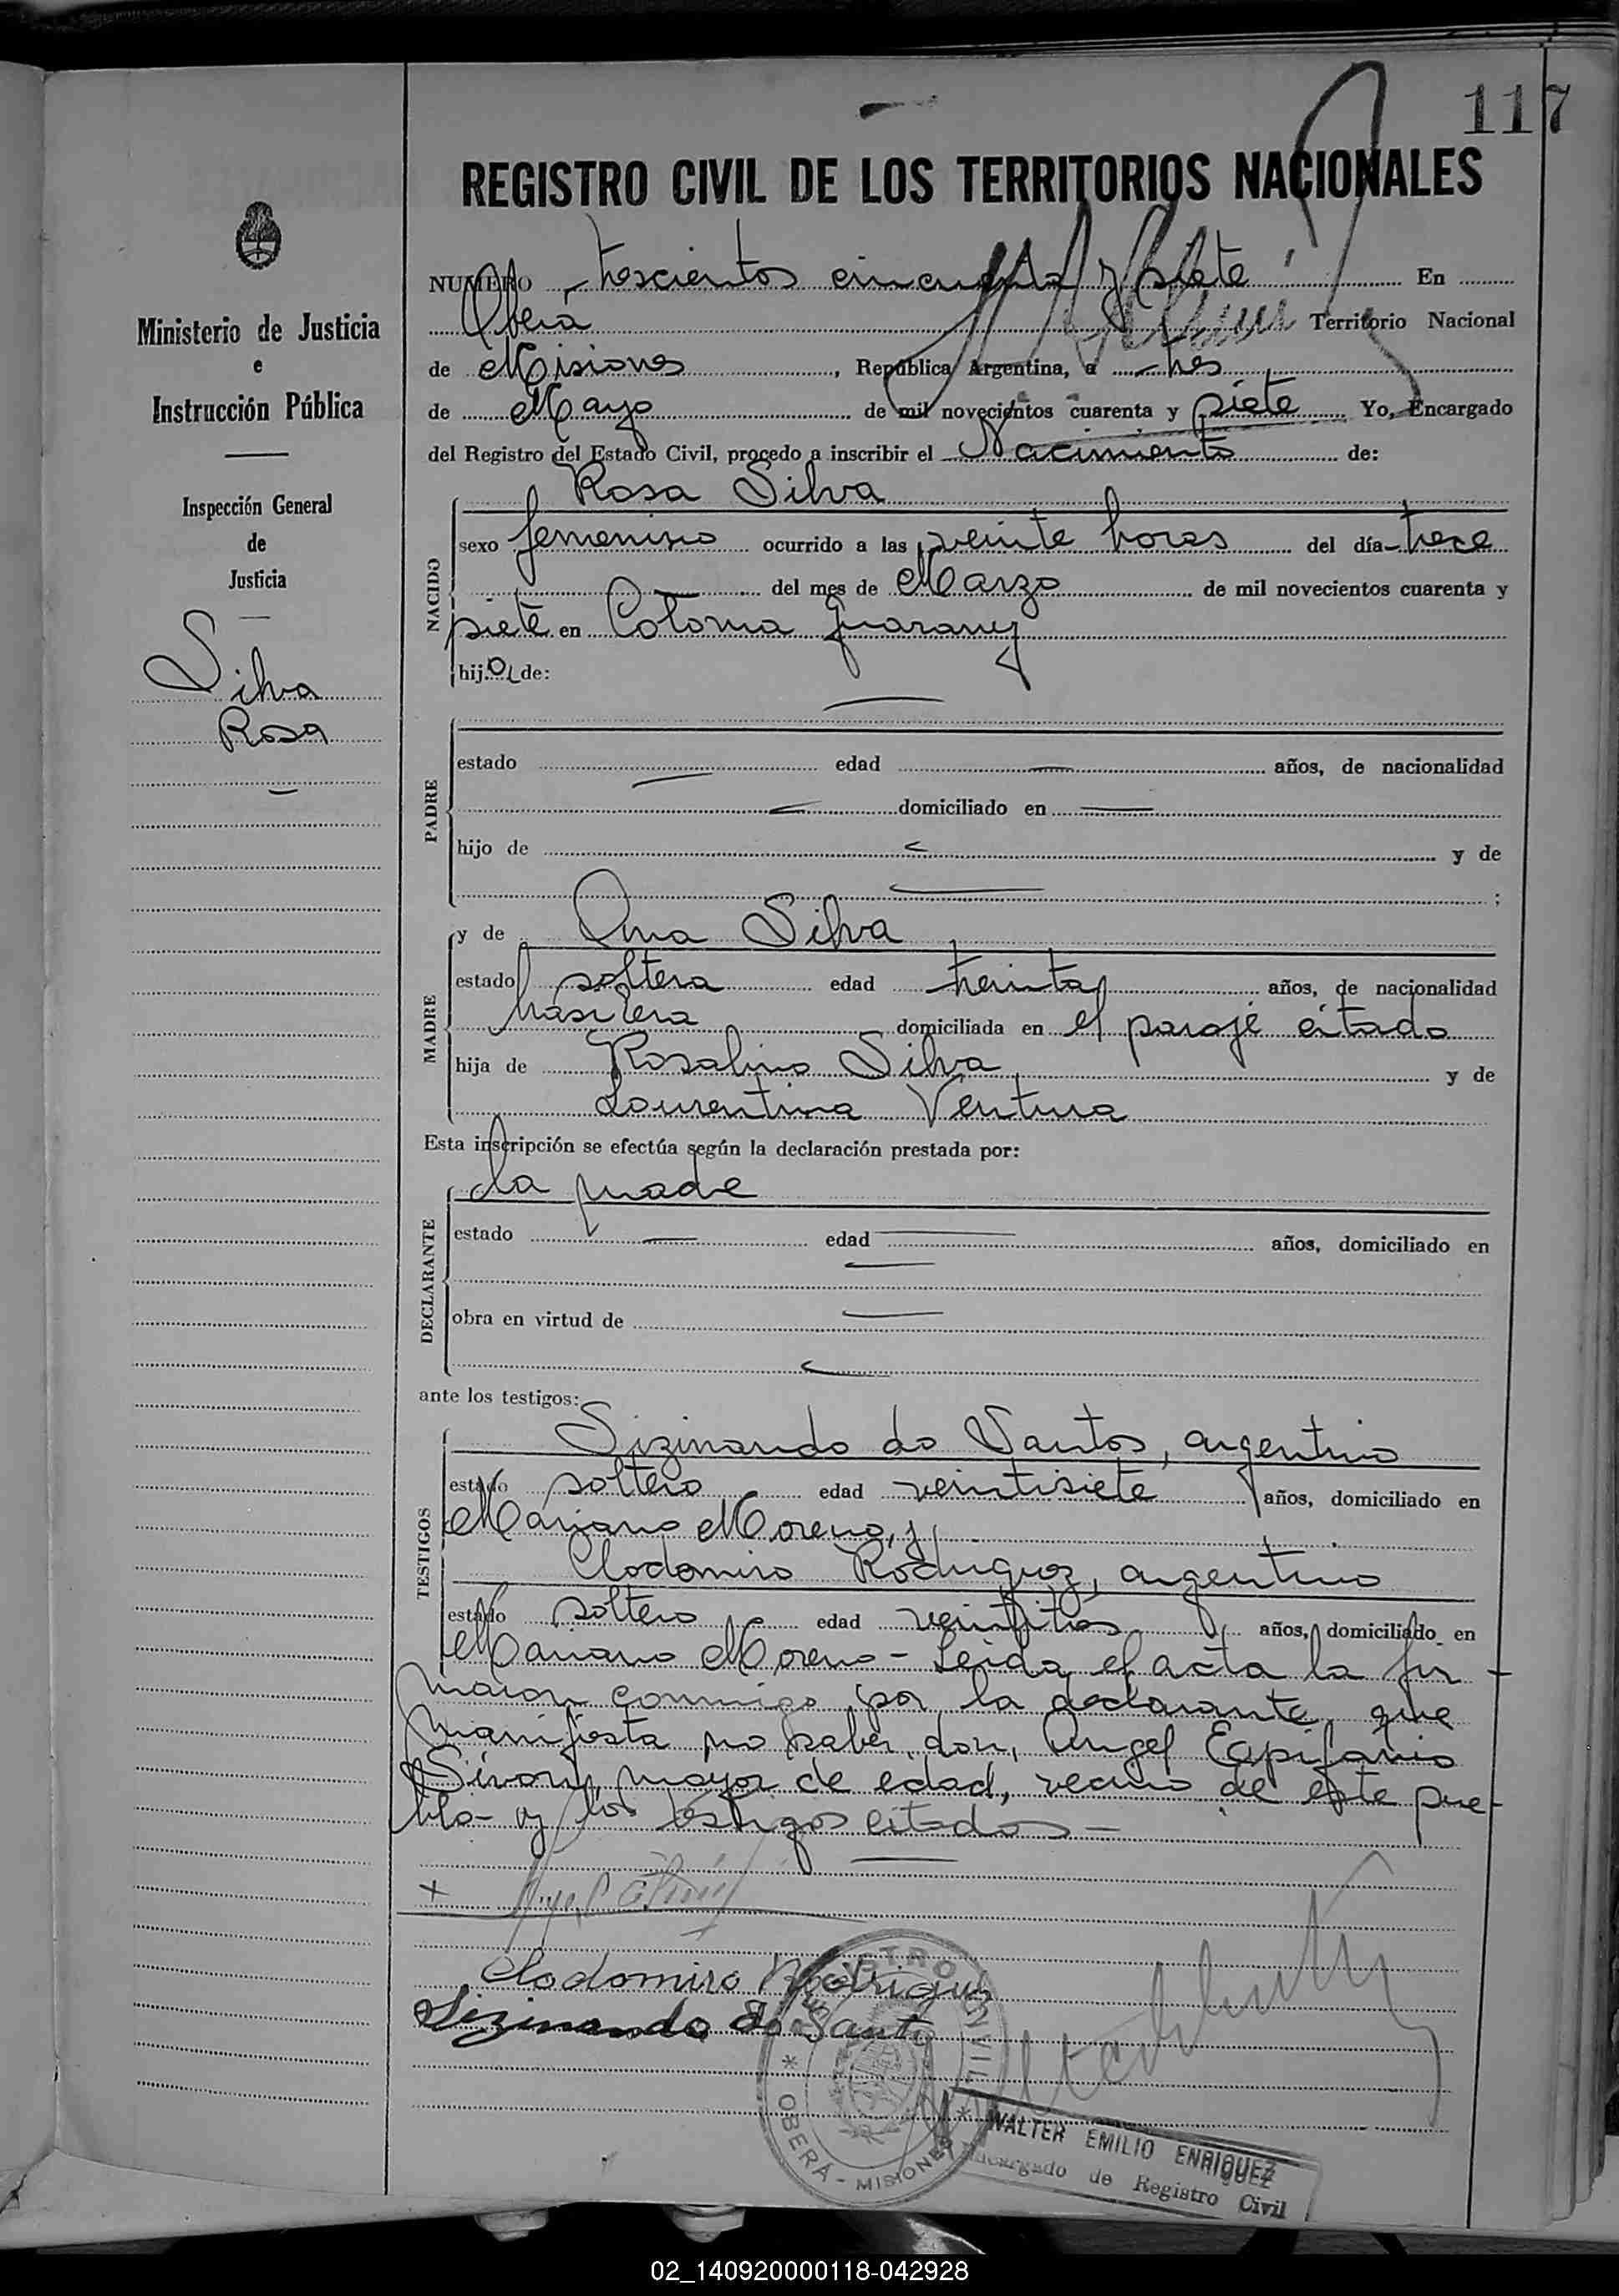 117
REGISTRO CIVIL DE LOS TERRITORIOS NACIONALES
Ministerio de Justicia
e
Instrucción Pública
Inspección General
de
Justicia
Silva
Rosa
NUMERO trescientos cincuenta y siete En
Oberá Territorio Nacional
de Misiones, República Argentina, a tres
de Mayo de mil novecientos cuarenta y siete Yo, Encargado
del Registro del Estado Civil, procedo a inscribir el Nacimiento de:
Rosa Silva
NACIDO
sexo femenino ocurrido a las veinte horas del día trece
del mes de Marzo de mil novecientos cuarenta y
siete en Colonia Guarany
hija de:
PADRE
estado edad años, de nacionalidad
domiciliado en
hijo de y de
;
MADRE
y de Ana Silva
estado soltera edad treinta años, de nacionalidad
brasilera domiciliada en el paraje citado
hija de Rosalino Silva y de
Laurentina Ventura
Esta inscripción se efectúa según la declaración prestada por:
DECLARANTE
la madre
estado edad años, domiciliado en
obra en virtud de
ante los testigos:
TESTIGOS
Sizinando do Santos, argentino
estado soltero edad veintisiete años, domiciliado en
Mariano Moreno, y
Clodomiro Rodriguez, argentino
estado soltero edad veintitres años, domiciliado en
Mariano Moreno - Leida el acta la fir-
maron conmigo por la declarante que
manifiesta no saber, don, Angel Epifanio
Sívori, mayor de edad, vecino de este pue-
blo- y los testigos citados -
+
Clodomiro Rodriguez
Sizinando do Santo
REGISTRO CIVIL
* OBERÁ - MISIONES *
WALTER EMILIO ENRIQUEZ
Encargado de Registro Civil
02_140920000118-042928